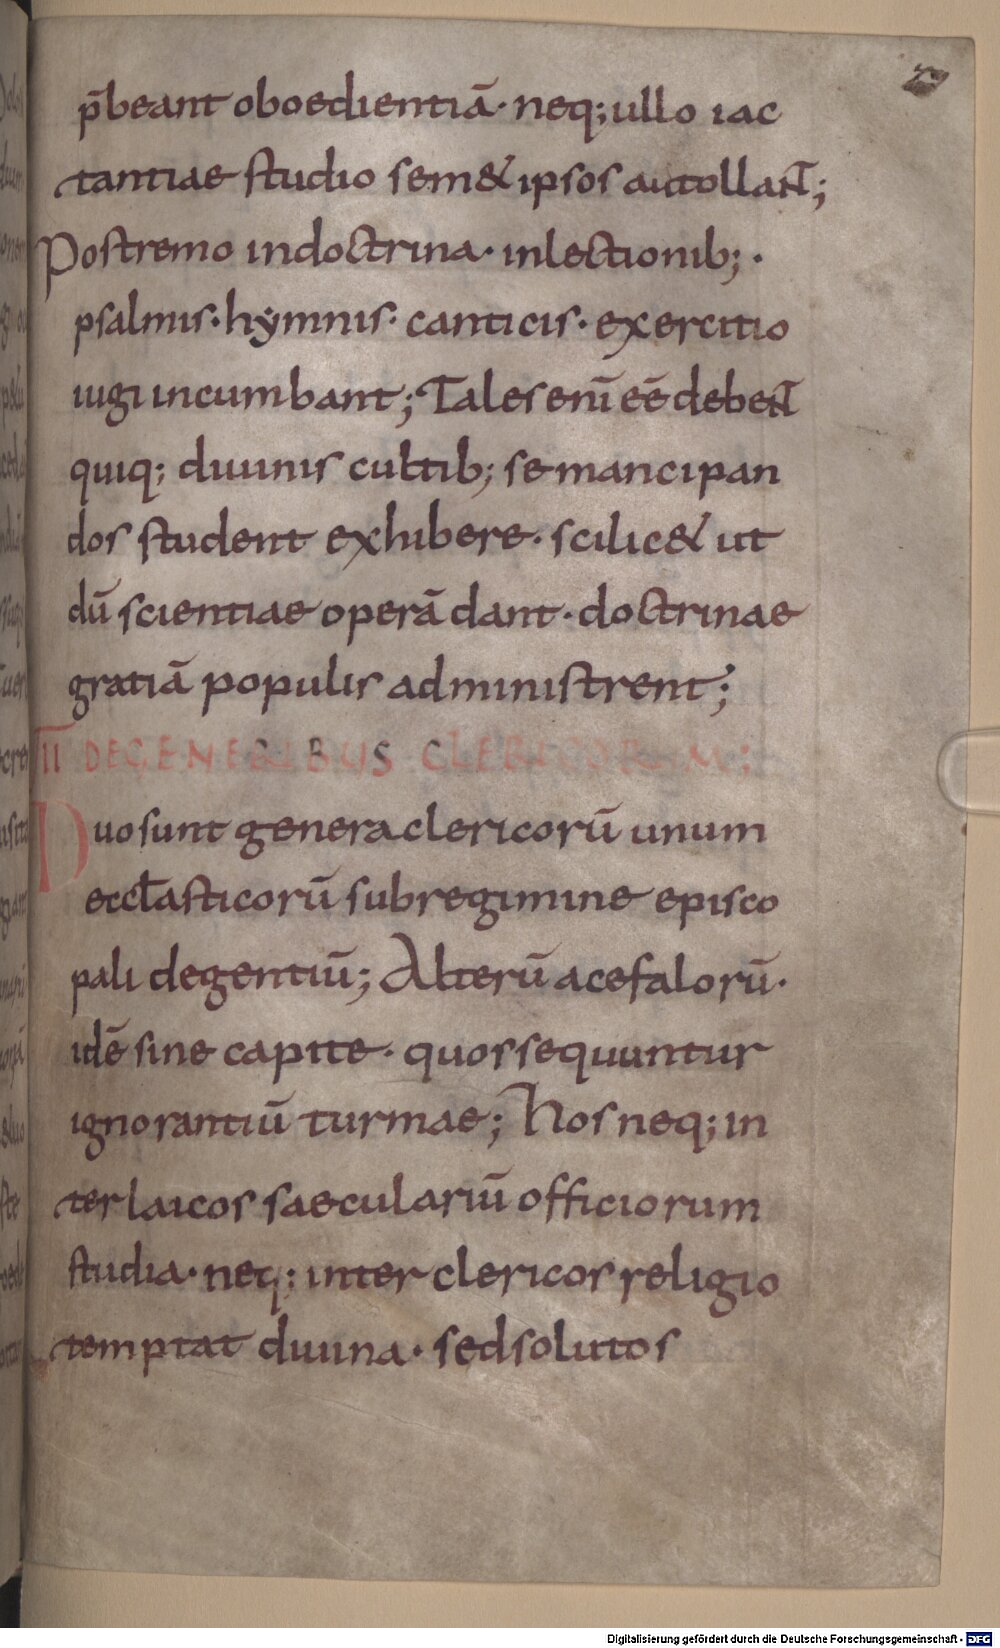 p̄beant oboedientiā· neq; ullo iac
tantiae studio sem& ipsos autollant;
Postremo in doctrina· in lectionib;·
psalmis· hymnis· canticis· exercitio
iugi incumbant; Tales enī eē debent
quiq; diuinis cultib; se mancipan
dos student exhibere· scilic& ut
dū scientiae operā dant· doctrinae
gratiā populis administrent;
II DE GENERIBUS CLERICORUM;
Duo sunt genera clericorū unum
eccłasticorū sub regimine episco
pali degentiū; Alterū acefalorū·
idē sine capite· quos sequuntur
ignorantiū turmae; Hos neq; in
ter laicos saeculariū officiorum
studia· neq; inter clericos religio
temptat diuina· sed solutos
Digitalisierung gefördert durch die Deutsche Forschungsgemeinschaft - DFG